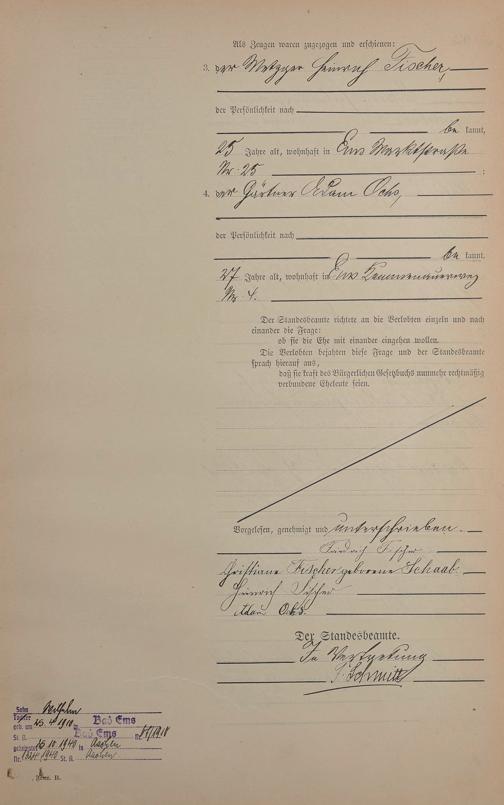 Als Zeugen waren zugezogen und erschienen:
3. der Metzger Heinrich Fischer,
der Persönlichkeit nach
be kannt,
25 Jahre alt, wohnhaft in Ems Marktstraße
Nr. 25 ;
4. der Gärtner Adam Ochs,
der Persönlichkeit nach
be kannt,
27 Jahre alt, wohnhaft in Ems Kemmenauerweg
Nr. 4.
Der Standesbeamte richtete an die Verlobten einzeln und nach
einander die Frage:
ob sie die Ehe mit einander eingehen wollen.
Die Verlobten bejahten diese Frage und der Standesbeamte
sprach hierauf aus,
daß sie kraft des Bürgerlichen Gesetzbuchs nunmehr rechtmäßig
verbundene Eheleute seien.
Vorgelesen, genehmigt und unterschrieben.
Friedrich Fischer
Christiane Fischer geborene Schaab.
Heinrich Fischer
Adam Ochs.
Der Standesbeamte.
In Vertretung
Schmitt
Sohn Wilhelm
Tochter
geb. am 25.4.1910 in Bad Ems
St. A. Bad Ems Nr.
1940 in Aachen
Nr. St. A. Aachen
B.